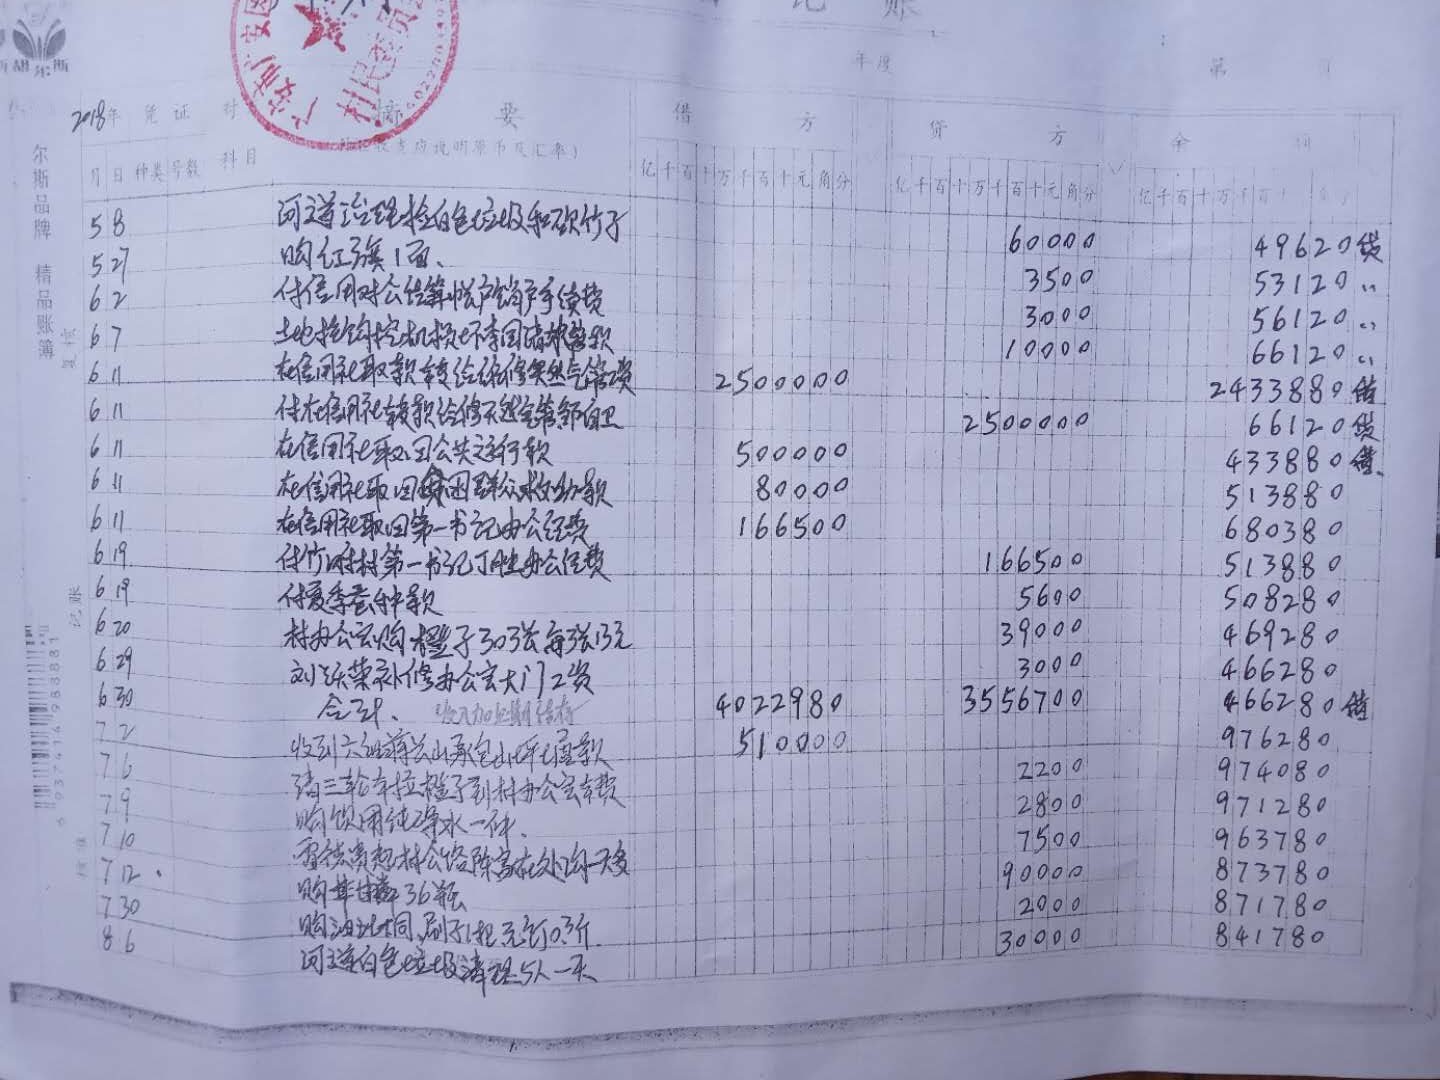 记 账
胡 尔 斯
年度
第
2018年 凭 证 对 摘 要 借 方 贷 方 余
月 日 种类 号数 科目 亿千百十万千百十元角分 亿千百十万千百十元角分 亿千百十万千百十
尔斯品牌 精品账簿
记账
6 937416 988881
5 8 河道治理捡白色垃圾和砍竹子 60000 49620 贷
5 27 购红旗1面、 3500 53120 〃
6 2 付信用对公结算帐户销户手续费 3000 56120 〃
6 7 10000 66120 〃
6 11 在信用社取款转给维修天然气管工资 2500000 2433880 借
6 11 付在信用社转款给修天然气管邹自卫 2500000 66120 贷
6 11 在信用社取回公共运行款 500000 433880 借
6 11 在信用社取回贫困群众救助款 80000 513880
6 11 在信用社取回第一书记办公经费 166500 680380
6 19 付竹 村第一书记丁胜办公经费 166500 513880
6 19 付夏季蚕种款 5600 508280
6 20 村办公室购橙子30张每张13元 39000 469280
6 29 刘 荣补修办公室大门工资 3000 466280
6 30 合计、 收入加上期结存 4022980 3556700 466280 借
7 2 收到六组蒋长山承包山坪塘款 510000 976280
7 6 请三轮车拉橙子到村办公室车费 2200 974080
7 9 购饮用纯净水一件. 2800 971280
7 10 7500 963780
7 12 购 36瓶 90000 873780
7 30 购油 刷子1把元钉0.5斤 2000 871780
8 6 河道白色垃圾清理5人一天 30000 841780